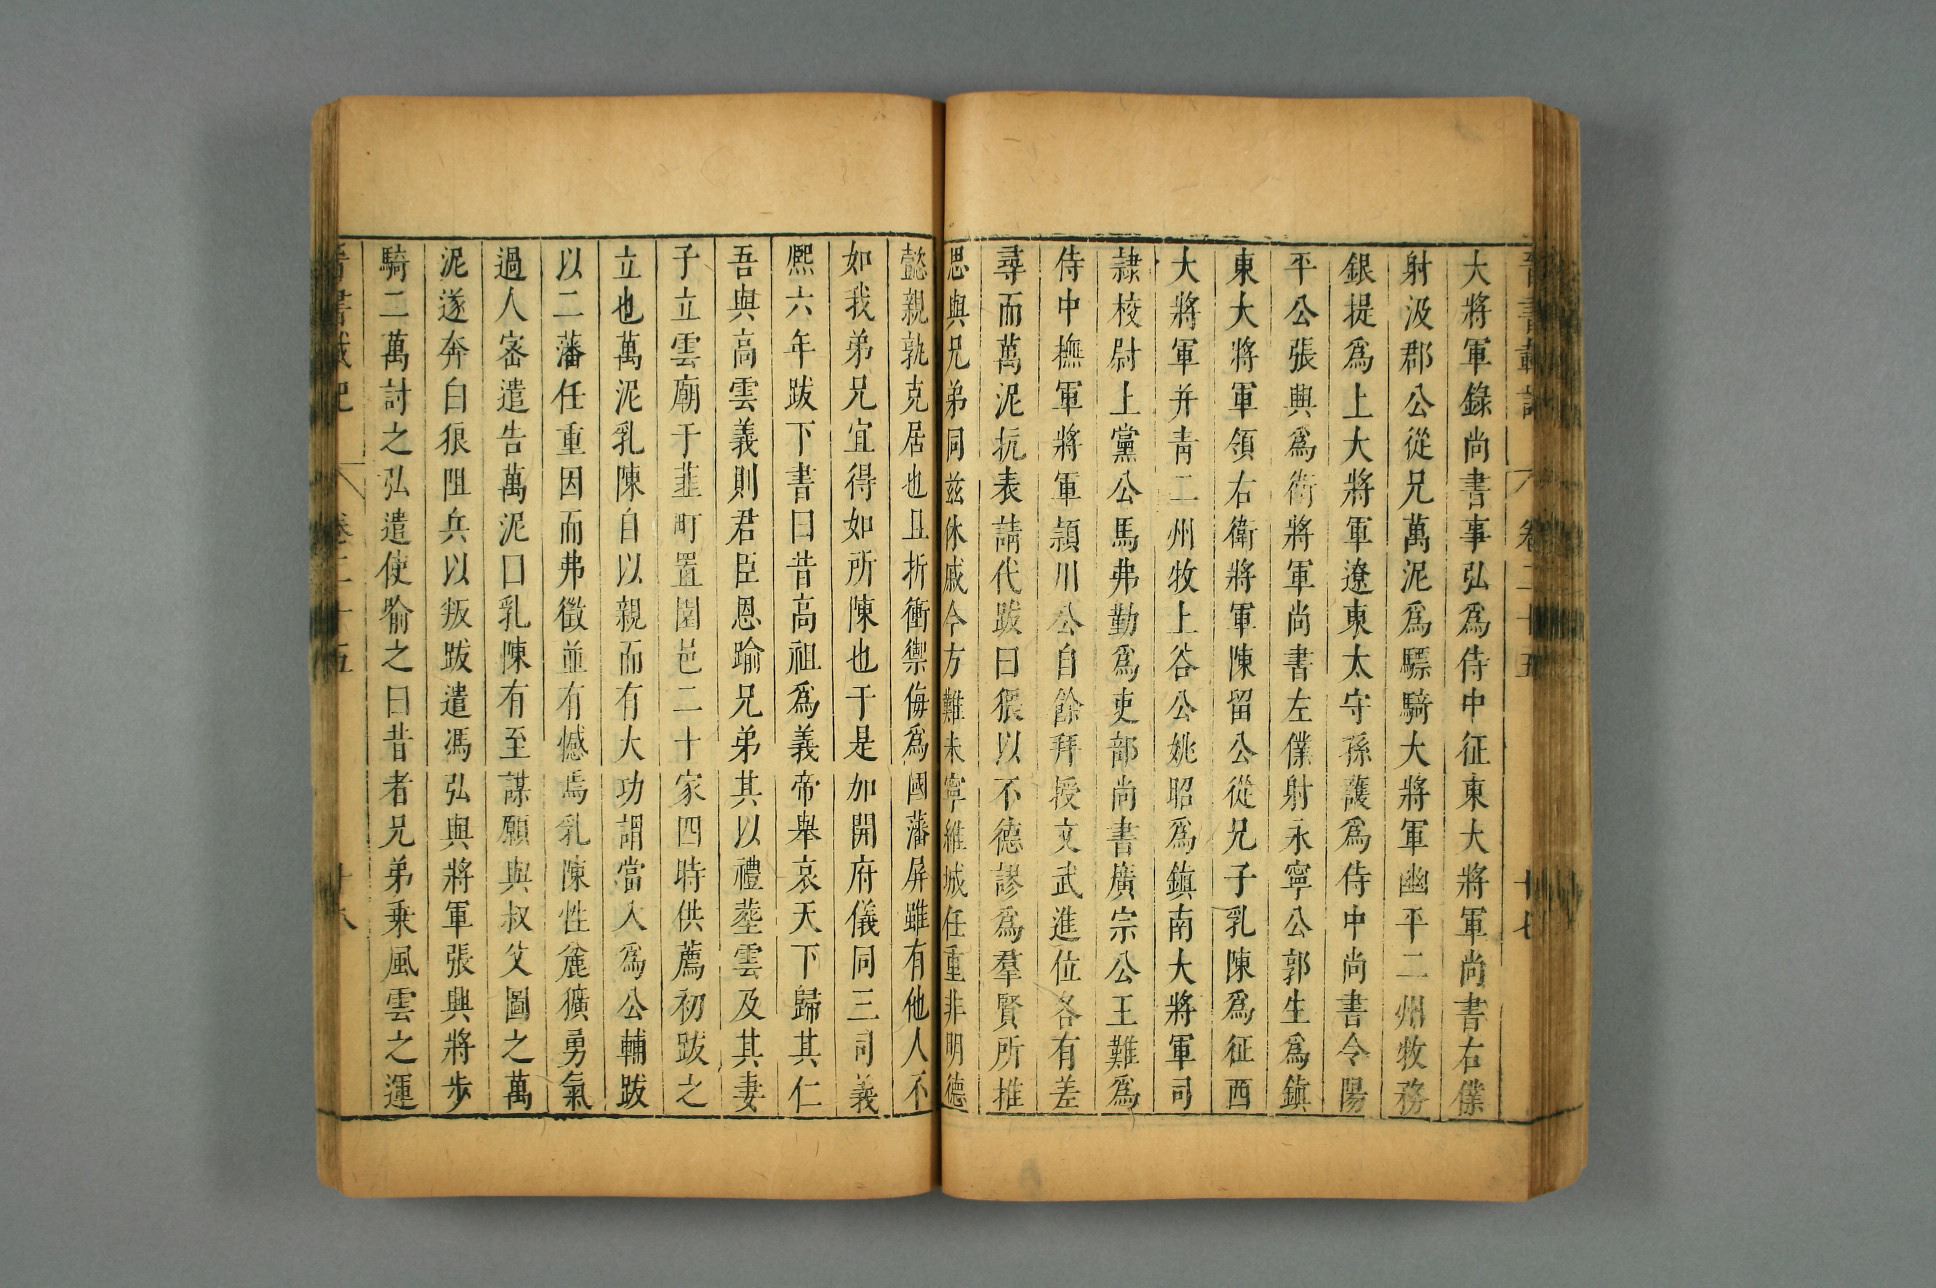 晉書載記 卷二十五 十七
大將軍錄尚書事弘爲侍中征東大將軍尚書右僕
射汲郡公從兄萬泥爲驃騎大將軍幽平二州牧務
銀提爲上大將軍遼東太守孫護爲侍中尚書令陽
平公張興爲衛將軍尚書左僕射永寧公郭生爲鎮
東大將軍領右衛將軍陳留公從兄子乳陳爲征西
大將軍并青二州牧上谷公姚昭爲鎮南大將軍司
隸校尉上黨公馬弗勤爲吏部尚書廣宗公王難爲
侍中撫軍將軍潁川公自餘拜授文武進位各有差
尋而萬泥抗表請代跋曰猥以不德謬爲羣賢所推
思與兄弟同兹休戚今方難未寧維城任重非明德
懿親孰克居也且折衝禦侮爲國藩屏雖有他人不
如我弟兄宜得如所陳也于是加開府儀同三司義
熙六年跋下書曰昔高祖爲義帝舉哀天下歸其仁
吾與高雲義則君臣恩踰兄弟其以禮葬雲及其妻
子立雲廟于韮町置園邑二十家四時供薦初跋之
立也萬泥乳陳自以親而有大功謂當入爲公輔跋
以二藩任重因而弗徵並有憾焉乳陳性麄獷勇氣
過人密遣告萬泥曰乳陳有至謀願與叔父圖之萬
泥遂奔白狼阻兵以叛跋遣馮弘與將軍張興將步
騎二萬討之弘遣使喻之曰昔者兄弟乗風雲之運
晉書載記 卷二十五 十八